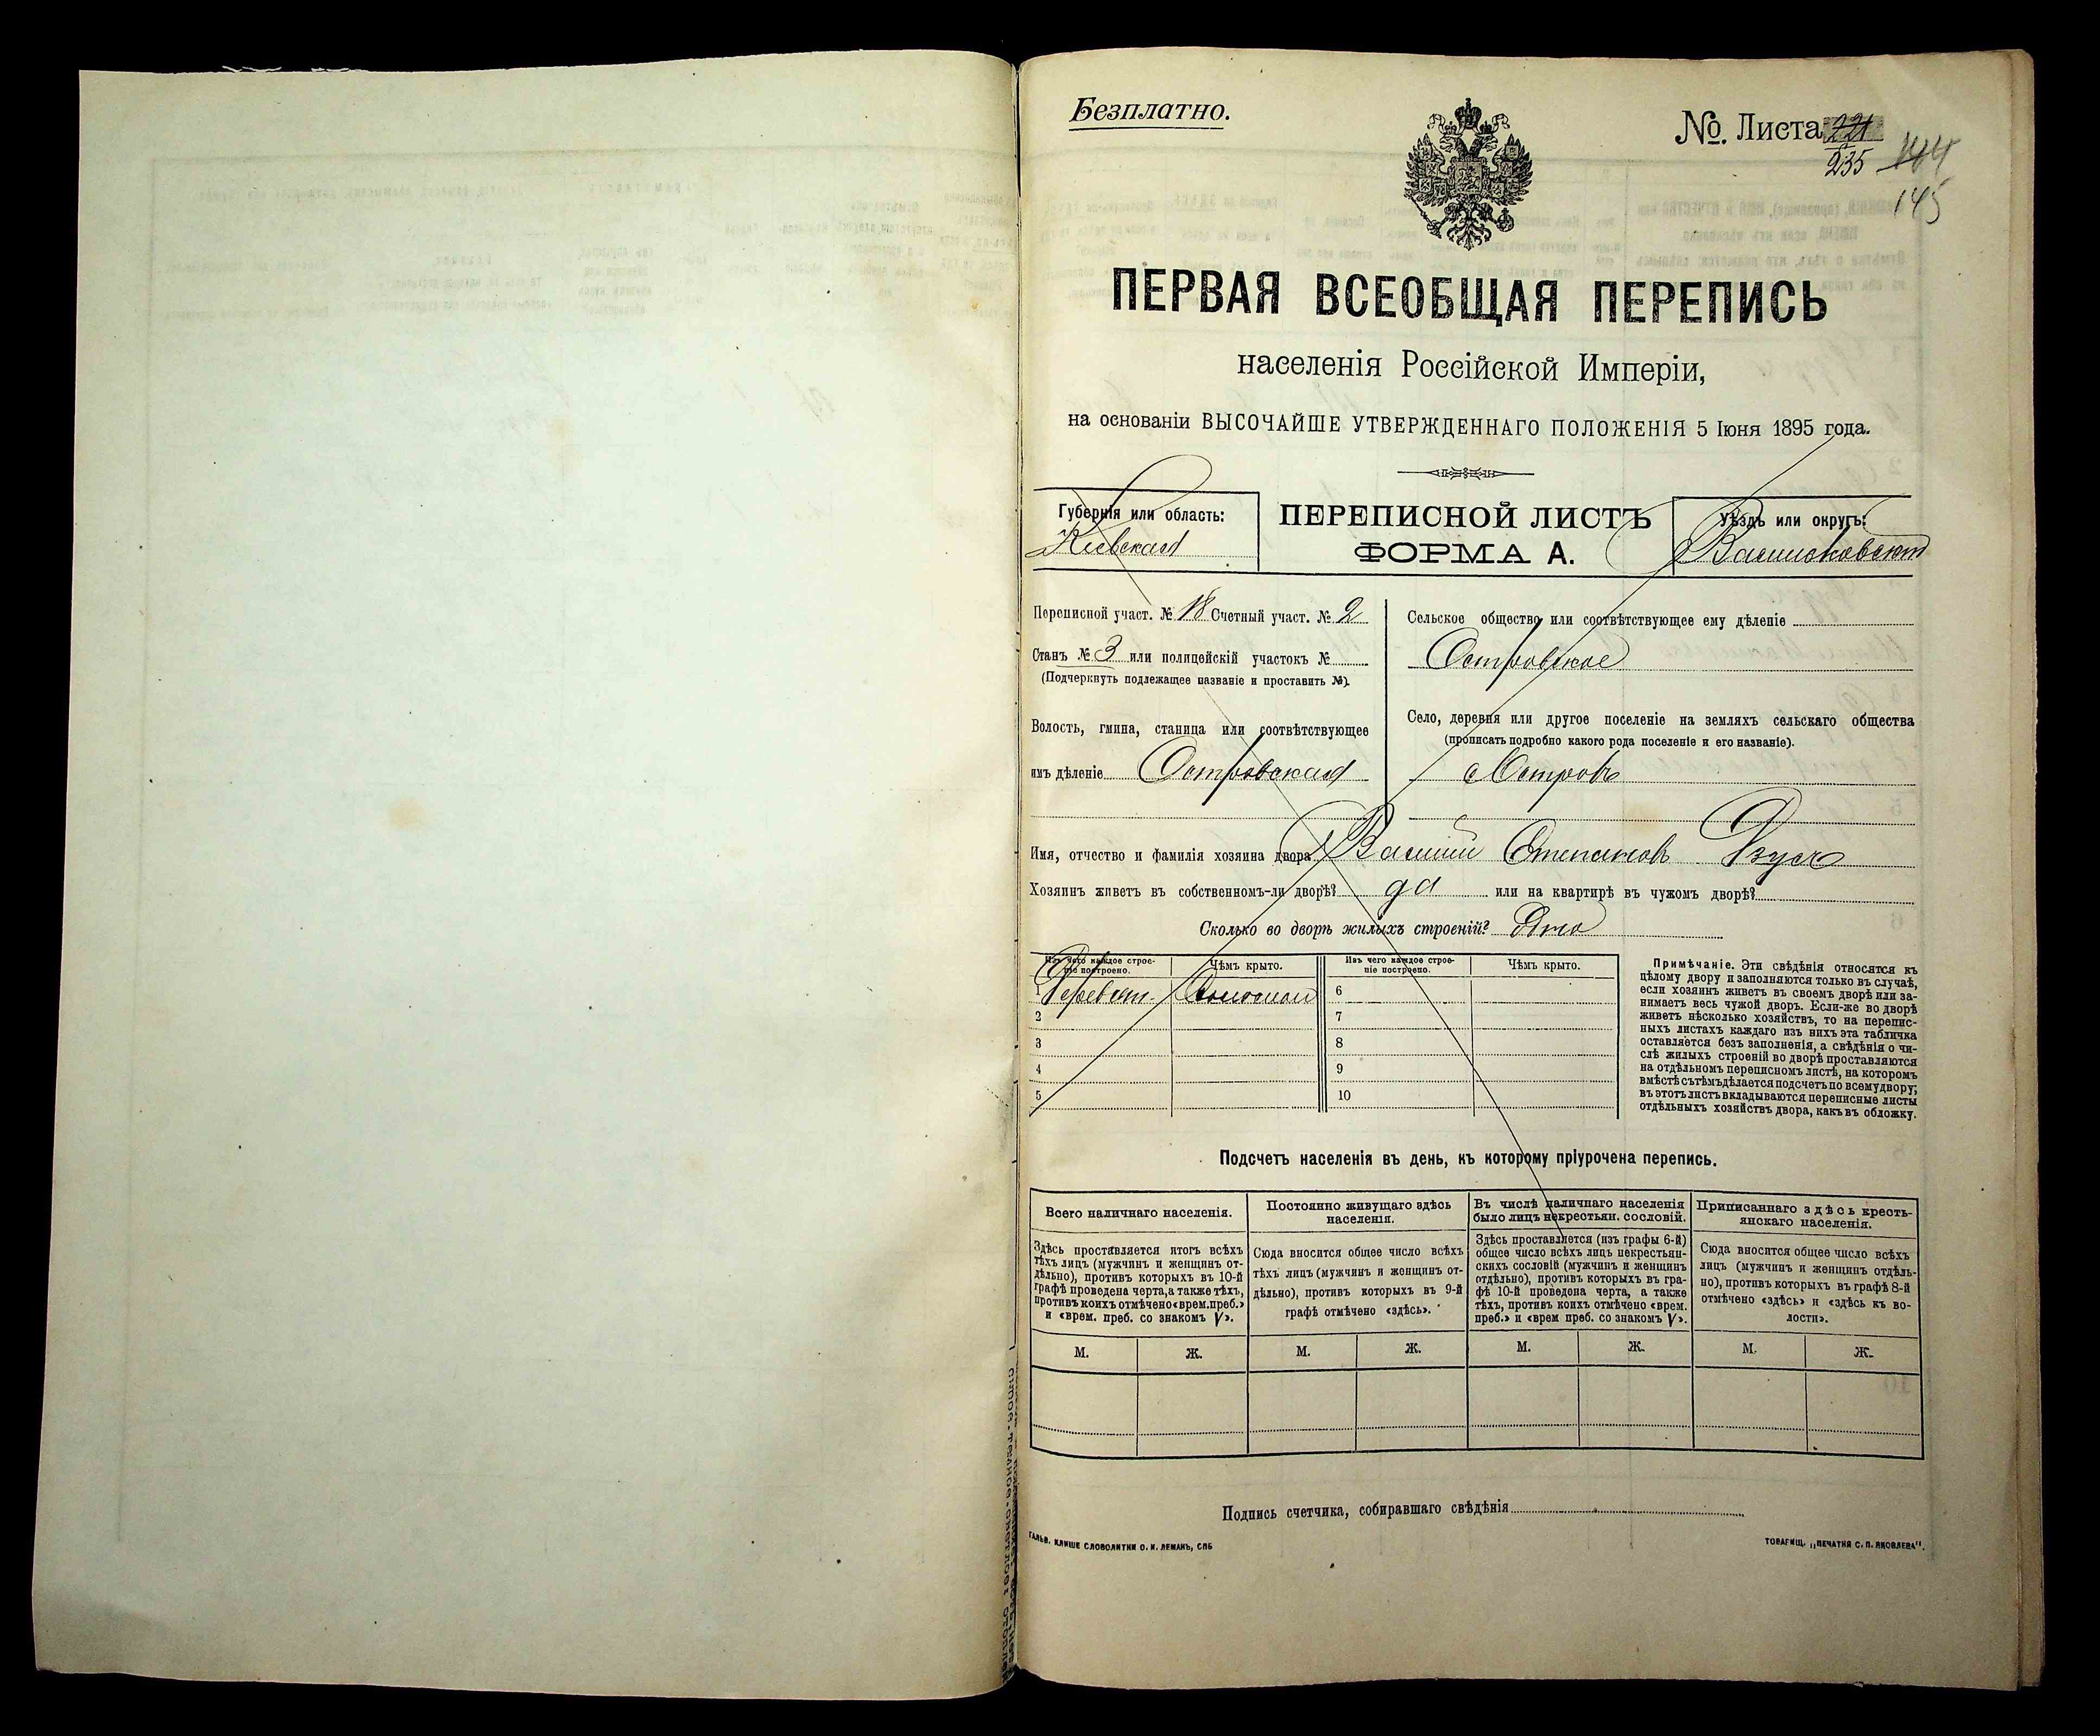 Безплатно.
№. Листа 221
235 144
145
ПЕРВАЯ ВСЕОБЩАЯ ПЕРЕПИСЬ
населенія Россійской Имперіи,
на основаніи ВЫСОЧАЙШЕ УТВЕРЖДЕННАГО ПОЛОЖЕНІЯ 5 Іюня 1895 года.
Губернія или область:
Кіевская
ПЕРЕПИСНОЙ ЛИСТЪ
ФОРМА А.
Уѣздъ или округъ:
Васильковскій
Переписной участ. № 18 Счетный участ. № 2
Станъ № 3 или полицейскій участокъ №
(Подчеркнуть подлежащее названіе и проставить №).
Волость, гмина, станица или соотвѣтствующее
имъ дѣленіе Островская
Сельское общество или соотвѣтствующее ему дѣленіе
Островское
Село, деревня или другое поселеніе на земляхъ сельскаго общества
(прописать подробно какого рода поселеніе и его названіе).
с Островъ
Имя, отчество и фамилія хозяина двора Василий Степановъ
Хозяинъ живетъ въ собственномъ-ли дворѣ? да или на квартирѣ въ чужомъ дворѣ?
Сколько во дворѣ жилыхъ строеній? Одно
Изъ чего каждое строеніе построено. Чѣмъ крыто. Изъ чего каждое строеніе построено. Чѣмъ крыто.
1 Деревян. Соломой 6
2 7
3 8
4 9
5 10
Примѣчаніе. Эти свѣдѣнія относятся къ
цѣлому двору и заполняются только въ случаѣ,
если хозяинъ живетъ въ своемъ дворѣ или за-
нимаетъ весь чужой дворъ. Если-же во дворѣ
живетъ нѣсколько хозяйствъ, то на перепис-
ныхъ листахъ каждаго изъ нихъ эта табличка
оставляется безъ заполненія, а свѣдѣнія о чи-
слѣ жилыхъ строеній во дворѣ проставляются
на отдѣльномъ переписномъ листѣ, на которомъ
вмѣстѣ съ тѣмъ дѣлается подсчетъ по всему двору;
въ этотъ листъ вкладываются переписные листы
отдѣльныхъ хозяйствъ двора, какъ въ обложку.
Подсчетъ населенія въ день, къ которому пріурочена перепись.
Всего наличнаго населенія.
Здѣсь проставляется итогъ всѣхъ
тѣхъ лицъ (мужчинъ и женщинъ от-
дѣльно), противъ которыхъ въ 10-й
графѣ проведена черта, а также тѣхъ,
противъ коихъ отмѣчено «врем. преб.»
и «врем. преб. со знакомъ V».
Постоянно живущаго здѣсь
населенія.
Сюда вносится общее число всѣхъ
тѣхъ лицъ (мужчинъ и женщинъ от-
дѣльно), противъ которыхъ въ 9-й
графѣ отмѣчено «здѣсь».
Въ числѣ наличнаго населенія
было лицъ некрестьян. сословій.
Здѣсь проставляется (изъ графы 6-й)
общее число всѣхъ лицъ некрестьян-
скихъ сословій (мужчинъ и женщинъ
отдѣльно), противъ которыхъ въ гра-
фѣ 10-й проведена черта, а также
тѣхъ, противъ коихъ отмѣчено «врем.
преб.» и «врем преб. со знакомъ V».
Приписаннаго здѣсь кресть-
янскаго населенія.
Сюда вносится общее число всѣхъ
лицъ (мужчинъ и женщинъ отдѣль-
но), противъ которыхъ въ графѣ 8-й
отмѣчено «здѣсь» и «здѣсь къ во-
лости».
М. Ж. М. Ж. М. Ж. М. Ж.
Подпись счетчика, собиравшаго свѣдѣнія
ГАЛЬВ. КЛИШЕ СЛОВОЛИТНИ О. И. ЛЕМАНЪ, СПБ
ТОВАРИЩ. „ПЕЧАТНЯ С. П. ЯКОВЛЕВА".